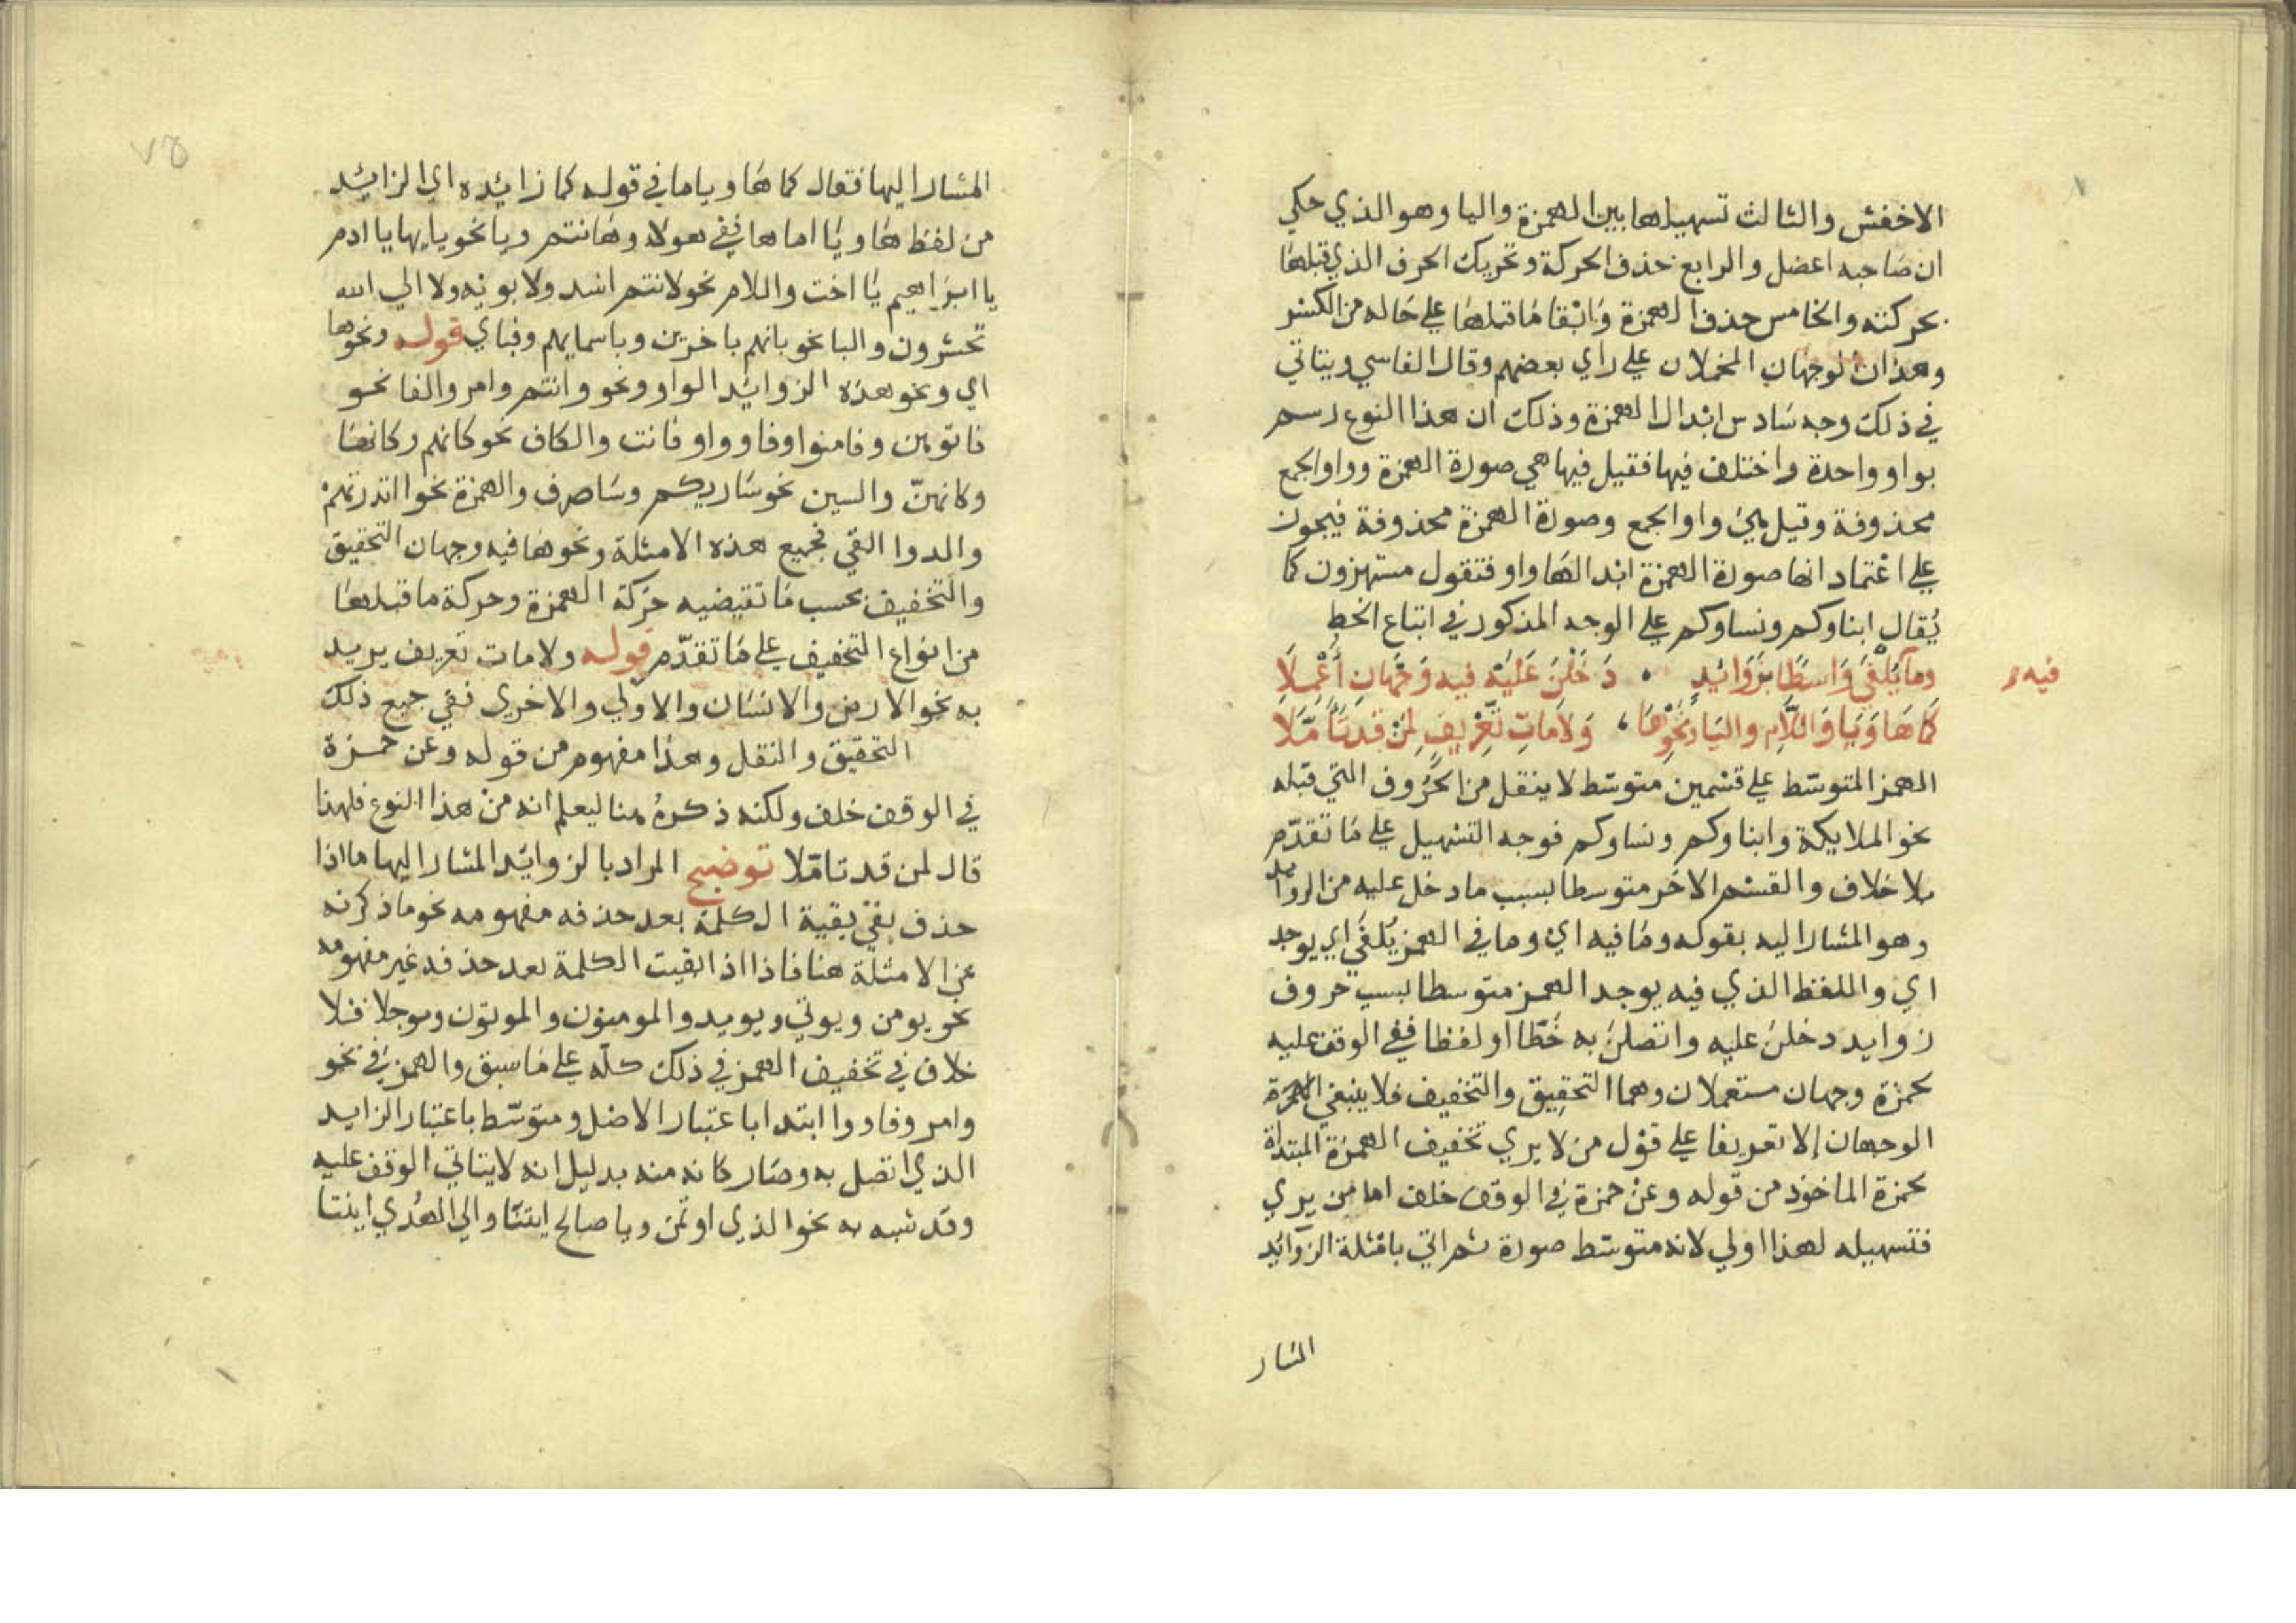 الاخفش والثالث تسهيلها بين الهمزة واليا وهو الذي حكي
ان صاحبه اعضل والرابع حذف الحركة وتحريك الحرف الذي قبلها
بحركته والخامس حذف الهمزة وابقا ما قبلها علي حاله من الكسر
وهذان الوجهان المخملان علي راي بعضهم وقال الفاسي ويتاتي
في ذلك وجه سادس ابدال الهمزة وذلك ان هذا النوع رسم
بواو واحدة واختلف فيها فقيل فيها هي صورة الهمزة وواو الجمع
محذوفة وقيل بل واو الجمع وصورة الهمزة محذوفة فيجوز
علي اعتماد انها صورة الهمزة ابدالها واو فتقول مستهزون كما
يُقال ابناوكم ونساوكم علي الوجه المذكور في اتباع الخط
وما يُلْفَى وَاسطًا بزَوَائِدٍ دَخَلْنَ عَلَيْهِ فيه وَجْهَانِ أُعْمِلَا
فيه و
كَمَا هَا وَيَا وَاللَّامِ والبَا وَنَحْوِهَا وَلَامَاتِ تَعْرِيفٍ لِمَنْ قَد تَأَمَّلَا
الهمز المتوسّط علي قسمين متوسّط لا ينقل من الحُروف التي قبله
نحو الملايكة وابناوكم ونساوكم فوجه التسْهيل علي مَا تقدّم
بلا خلاف والقسْم الاخر متوسطا بسبب ما دخل عليه من الزوايد
وهو المشار اليه بقوله ومَا فيه ايْ وما في الهمز يُلفَي اي يوجد
اي واللفظ الذي فيه يوجد الهمز متوسطا بسبب حروف
زوايد دخلنَ عليه واتصلنَ به خَطّا او لفظا ففي الوقف عليه
بحمزة وجهان مستعملان وهما التحقيق والتخفيف فلا ينبغي الهمزة
الوجهان إلا تعريفا علي قوْل من لا يري تخفيف الهمزة المبتداة
بحمزة الماخوذ من قوله وعنْ حمزة في الوقف خلف اما من يري
فتسهيله لهذا اولي لانه متوسّط صورة ثم اتي بامْثلة الزوائد
المشار
٧٥
المشار اليها فقال كما هَا ويا ما في قوله كما زائده اي الزائد
من لفظ هَا ويَا اما ها ففي هولاء وهَانتم ويا نحو يا يها يا ادم
يا ابرَاهيم يَا اخت واللام نحو لانتم اشد ولابويْه ولا الي الله
تحشرون والبا نحو بانهم باخرين وباسمايهم وفباي قوله ونحوها
اي ونحو هذه الزوائد الواو ونحو وانتم وامر والفا نحو
فاتوهن وفامنوا وفاووا وفانت والكاف نحو كانهم وكانها
وكانهنّ والسين نحو سَاريكم وسَاصرف والهمزة نحو ااندرتهمْ
والدوا القي فجميع هذه الامثلة ونحوها فيه وجهان التحقيق
والتخفيف بحسب مَا تقيضيه حَركة الهمزة وحركة ما قبلها
من انواع التخفيف علي مَا تقدّم قوله ولامات تعريف يريد
به نحو الارض والانسَان والاولي والاخري ففي جميع ذلك
التحقيق والنقل وهذا مفهوم من قوله وعن حمزة
في الوقف خلف ولكنه ذكرهُ هنا ليعلم انه منْ هذا النوع فلهذا
قال لمن قد تامّلا توضيح المراد بالزوائد المشار اليها ما اذا
حذف بقيَ بقية الكلمة بعد حذفه مفهومه نحو ما ذكرته
من الامثلة هنا فاذا اذا بقيت الكلمة بعد حذفه غير مفهومه
نحو يومن ويوتي ويويد والمومنون والموتون وموجلا فلا
خلاف في تخفيف الهمز في ذلك كله علي مَا سبق والهمز في نحو
وامر وفاووا ابتدا باعتبار الاصْل ومتوسّط باعتبار الزايد
الذي اتصل به وصَار كانه منه بدليل انه لا يتاتي الوقف عليه
وقد شبه به نحو الذي اوتمن ويا صالح ايتنَا والي الهُدي ايتنا